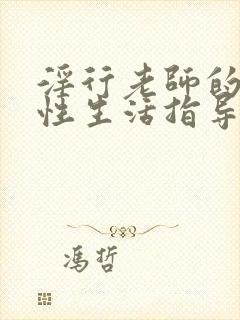 淫行老師的
性生活指导
冯哲